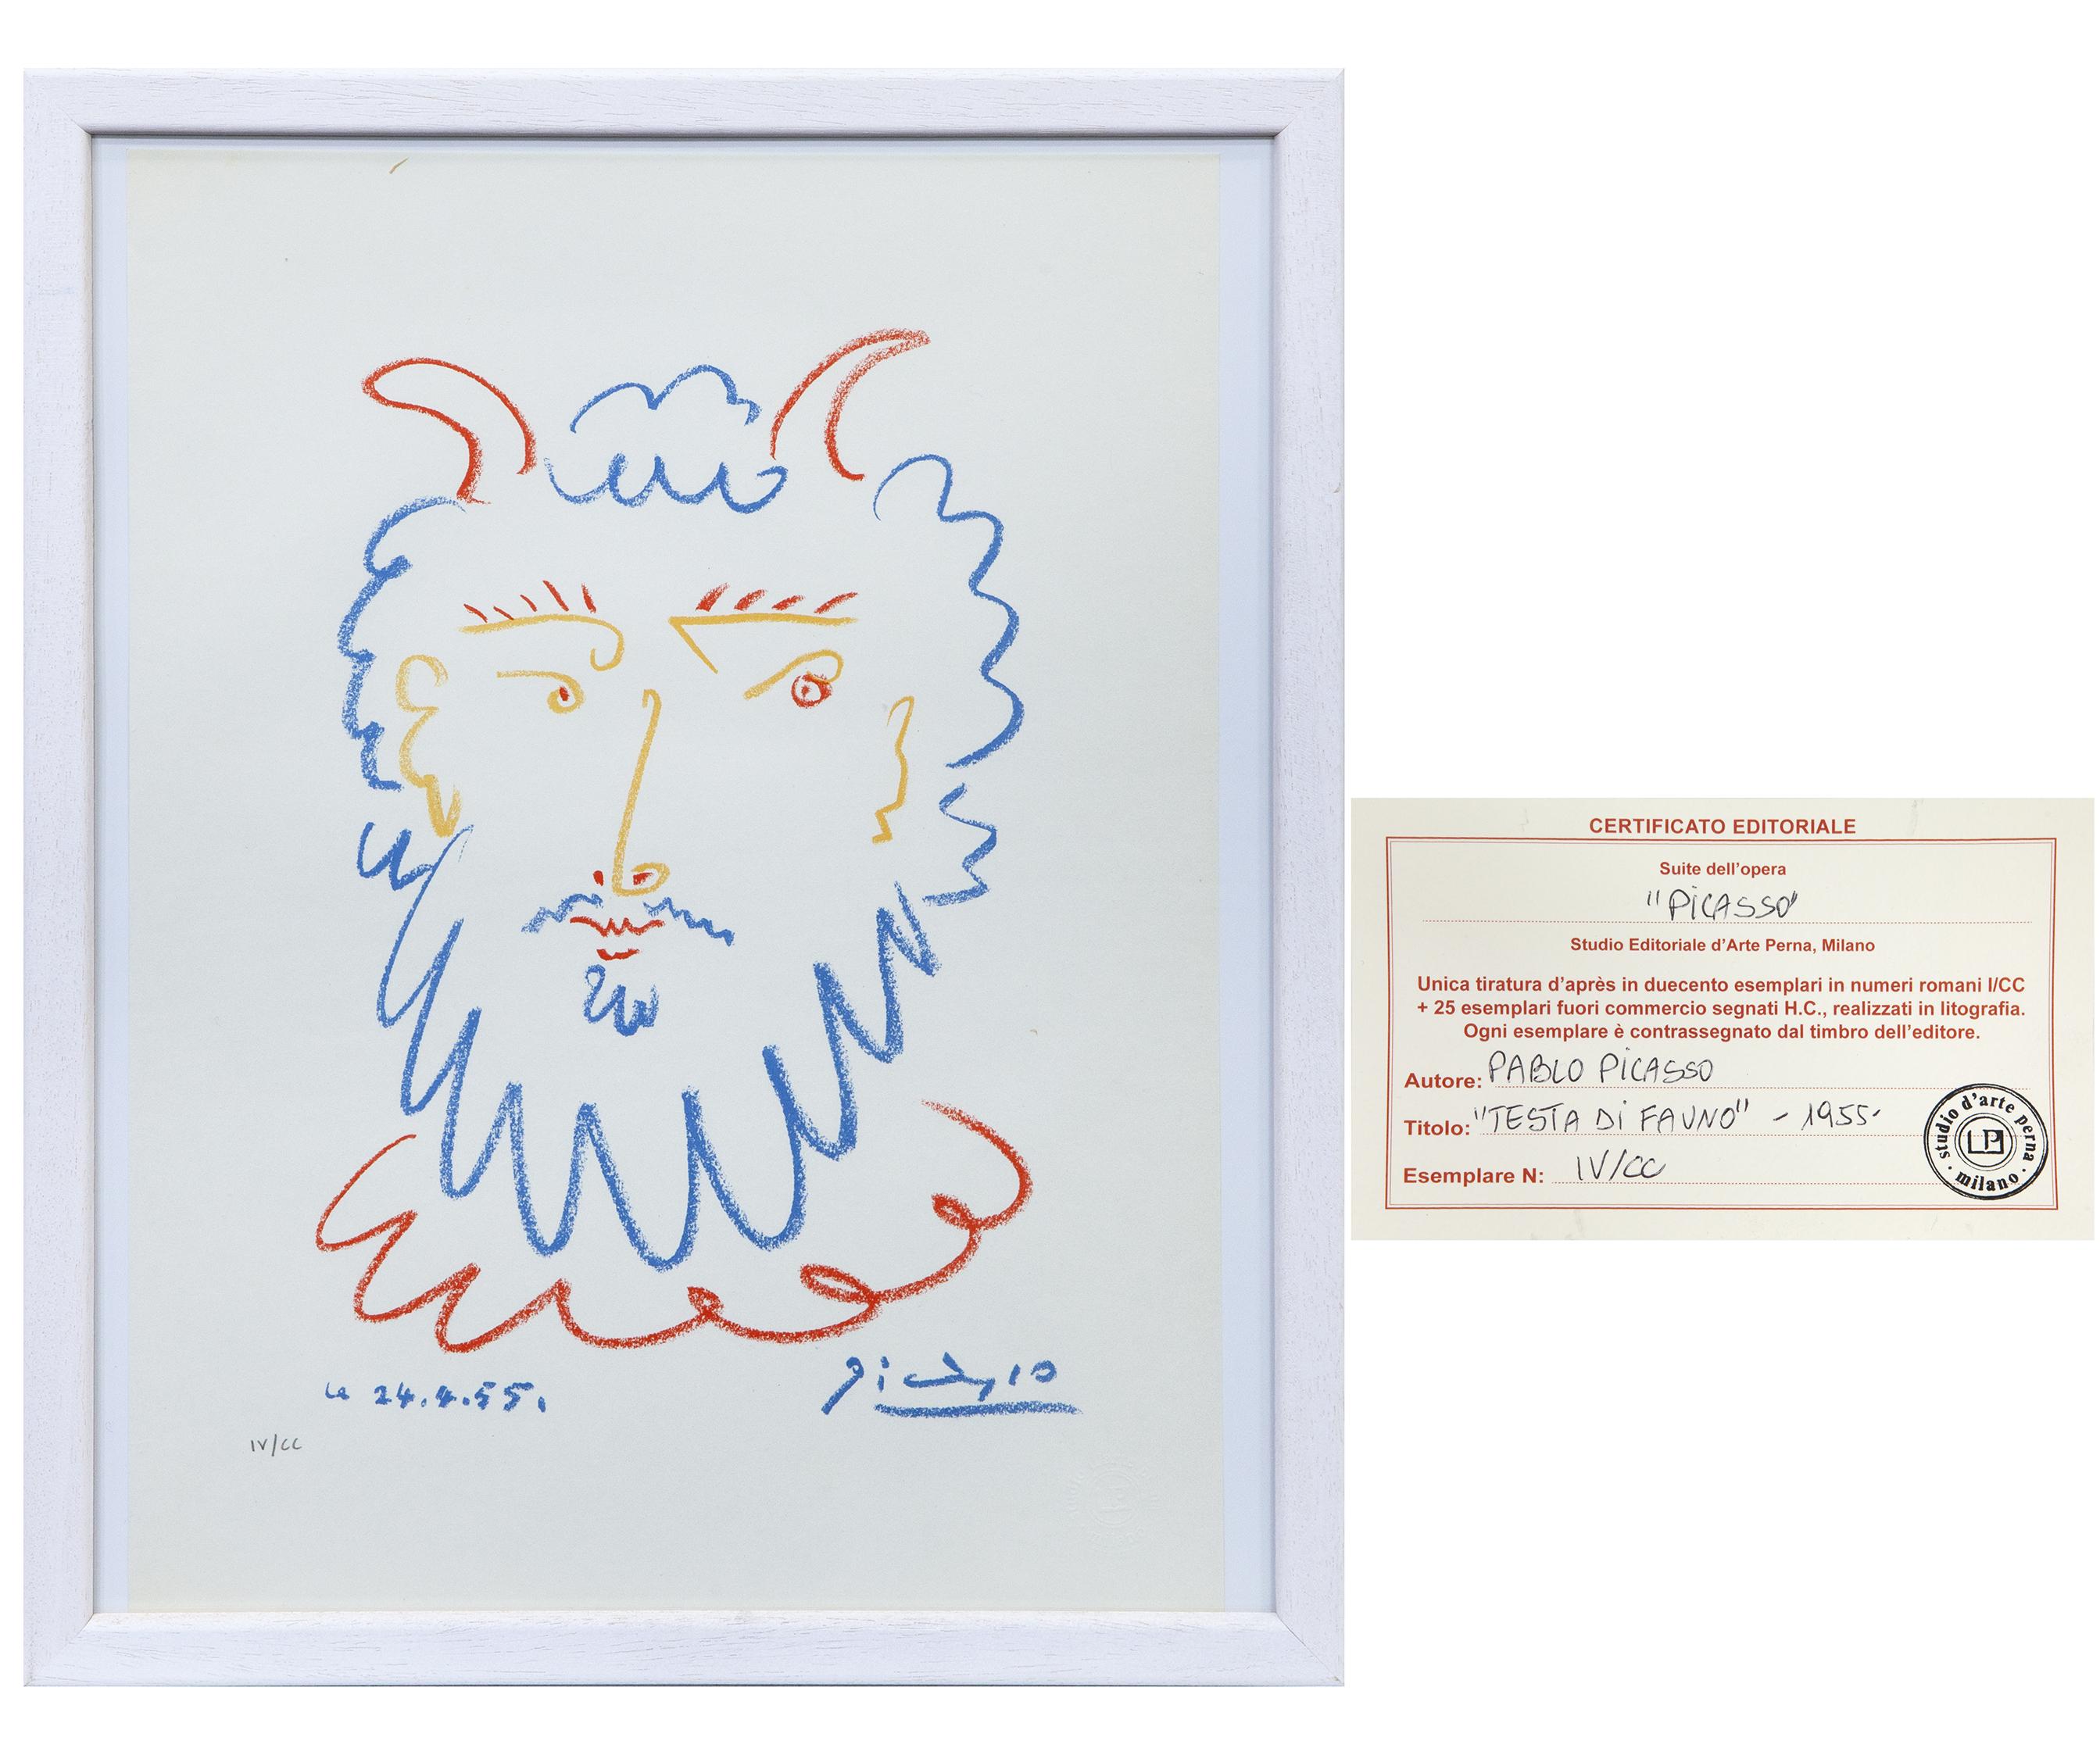 le 24.4.55.
Picasso
IV/CC
CERTIFICATO EDITORIALE
Suite dell'opera
"PICASSO"
Studio Editoriale d'Arte Perna, Milano
Unica tiratura d'après in duecento esemplari in numeri romani I/CC
+ 25 esemplari fuori commercio segnati H.C., realizzati in litografia.
Ogni esemplare è contrassegnato dal timbro dell'editore.
Autore: PABLO PICASSO
Titolo: "TESTA DI FAUNO" - 1955-
Esemplare N: IV/CC
studio d'arte perna
· milano ·